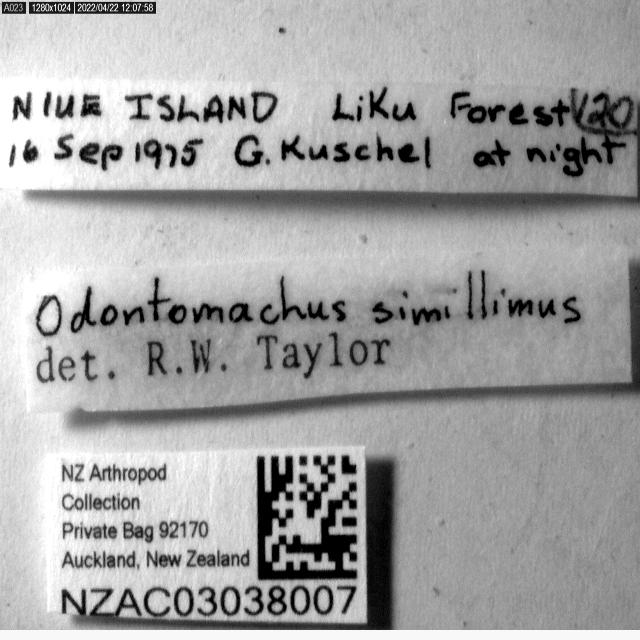 A023 1280x1024 2022/04/22 12:07:58
NIUE ISLAND LiKu Forest V20
16 Sep 1975 G. Kuschel at night
Odontomachus simillimus
det. R.W. Taylor
NZ Arthropod
Collection
Private Bag 92170
Auckland, New Zealand
NZAC03038007